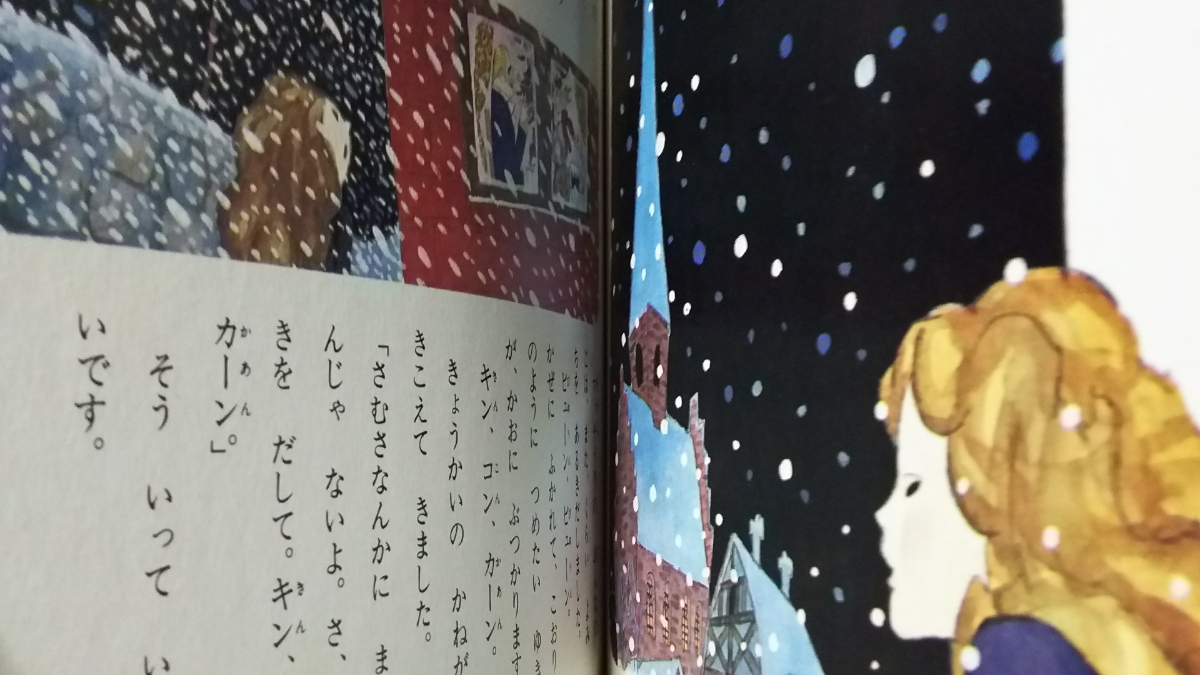 ちを あるきだしました。
ピューン、ピューン。
かぜに ふかれて、こおり
のように つめたい ゆき
が、かおに ぶつかります
キン、コン、カーン。
きょうかいの かねが
きこえて きました。
「さむさなんかに ま
んじゃ ないよ。さ、
きを だして。キン、
カーン。」
そう いって い
いです。